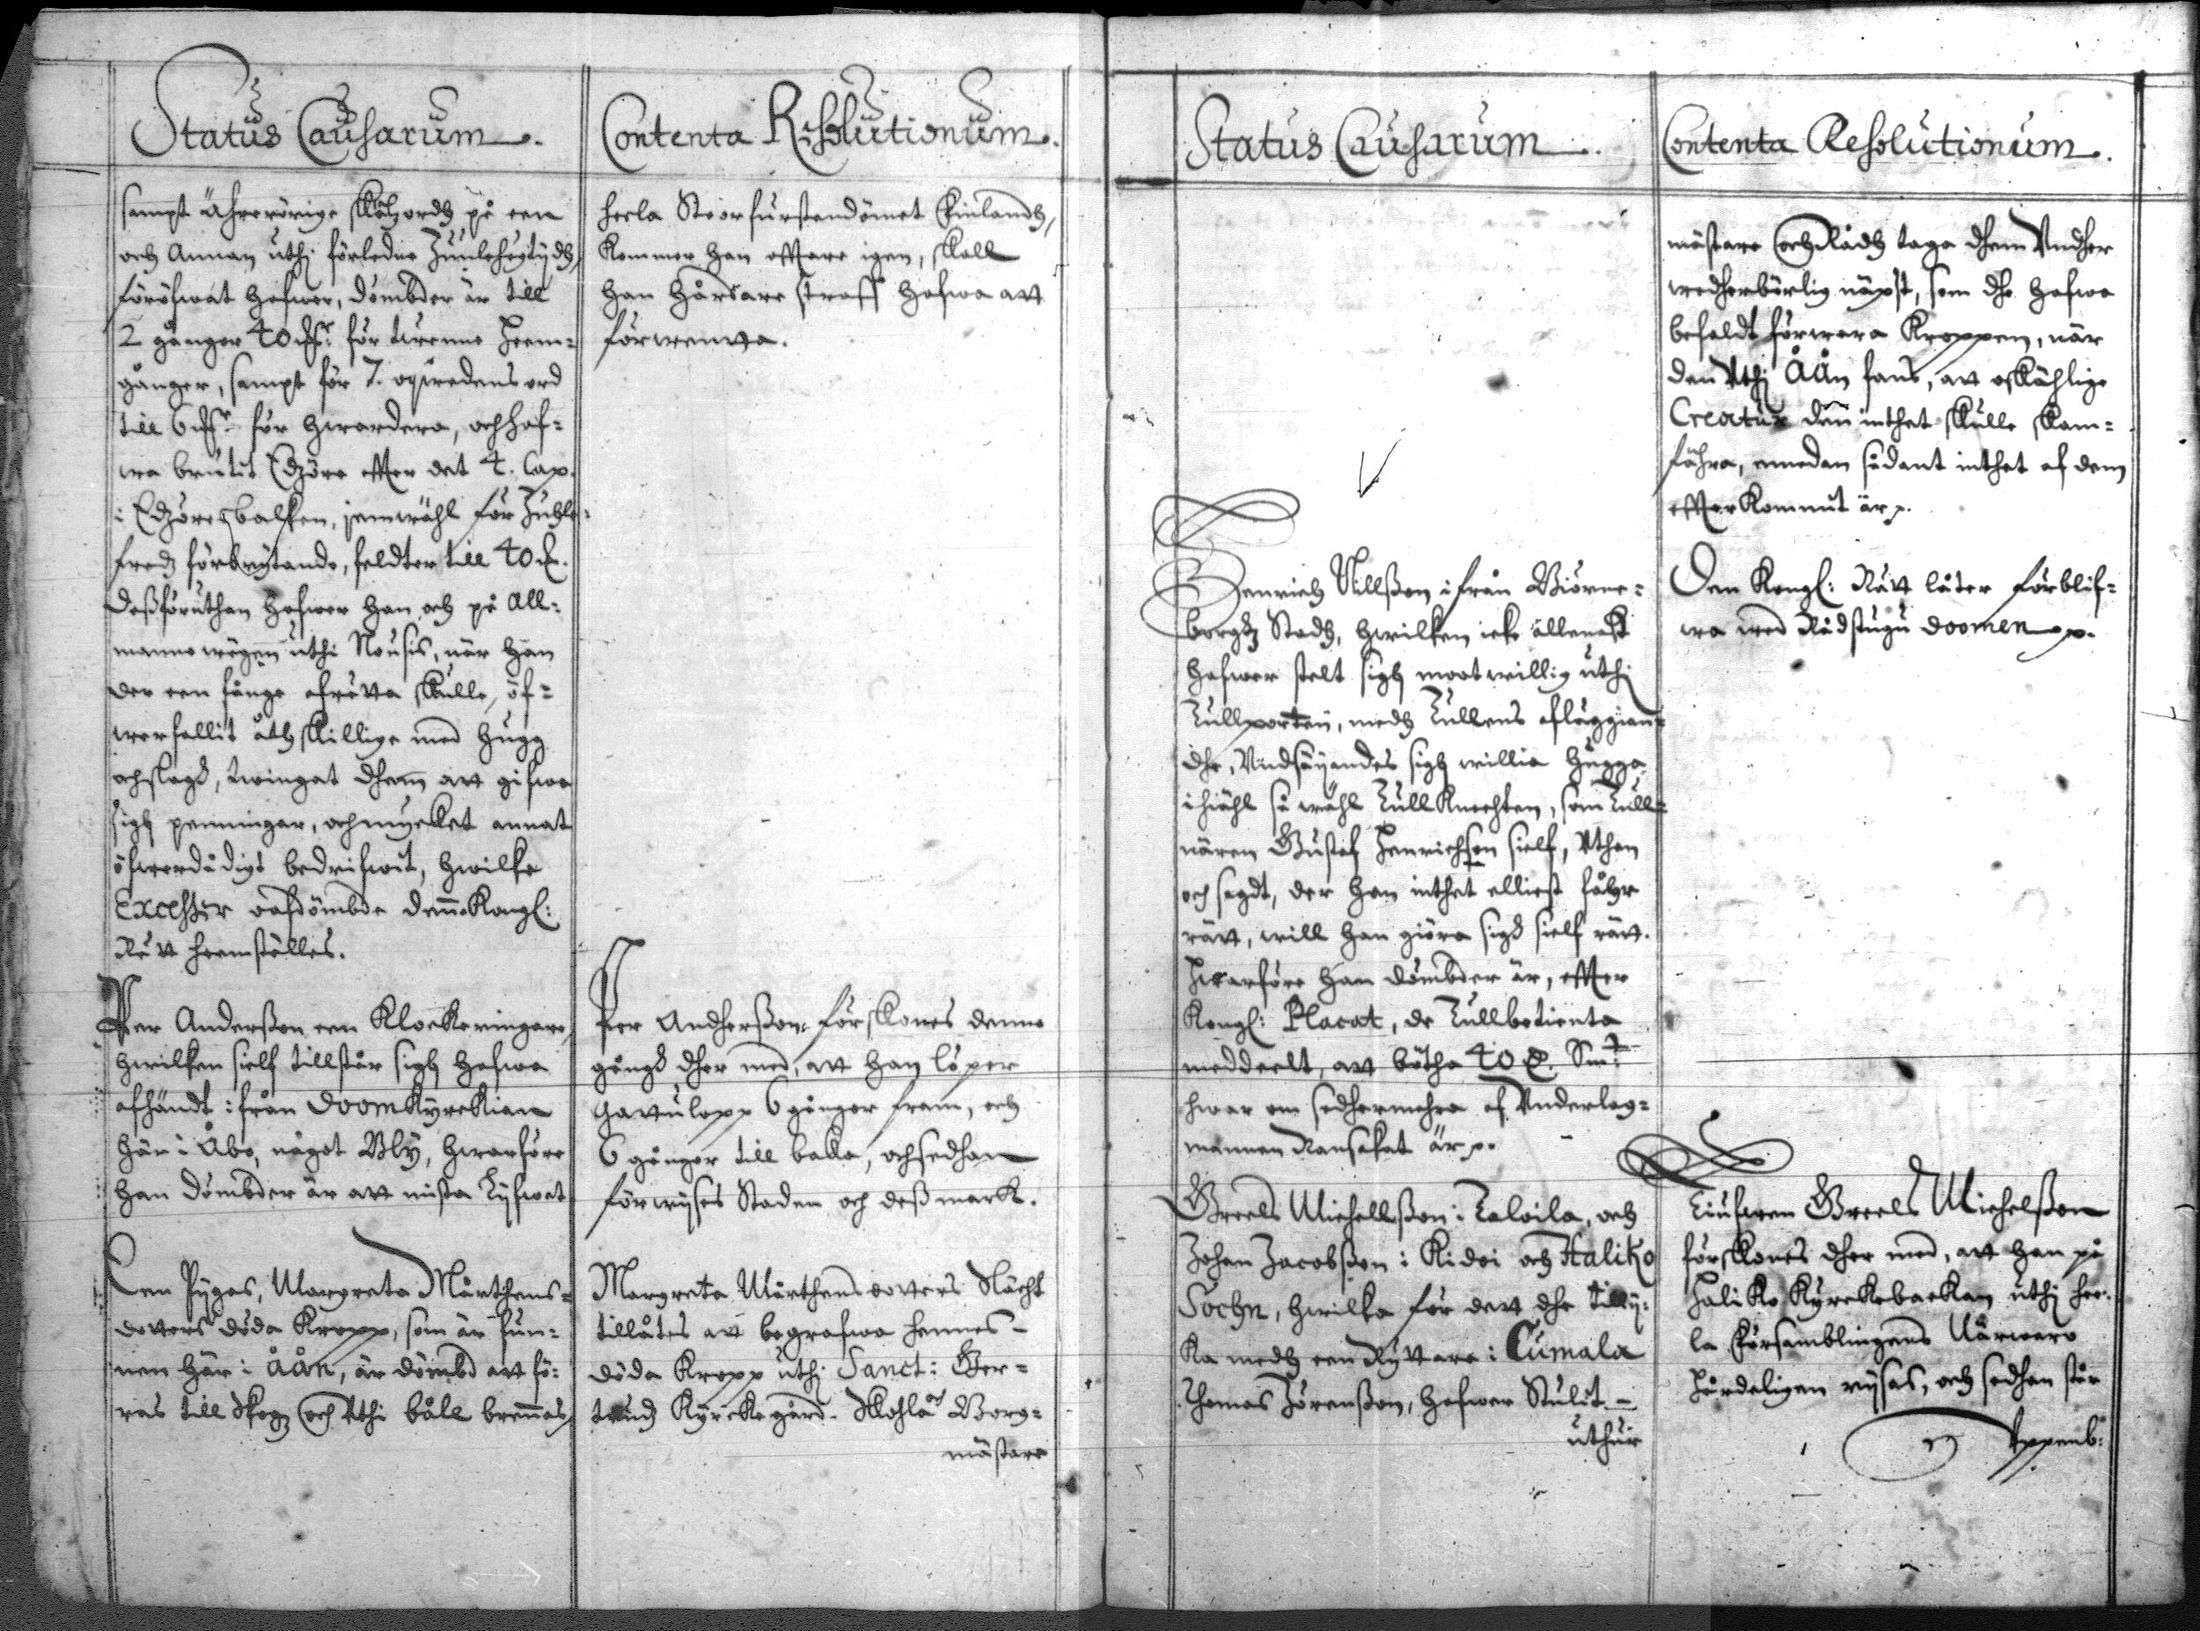 Status Causarum.
sampt ährerörige skälzordh på een
och Annan uthj förledne Juulehögtydh,
föröfwat hafwer, dömbder är till
2 gånger 40 för twenne Heem-
gånger, sampt för 7. oqwedens ord
till 6 för hwardera, och haf-
wa brutit Edzöre effter det 4. Cap.
i Edzöres balken, jemwähl för Juhle-
fredz förbrytande, feldter till 40
Deßföruthan hafwer han och på All-
manne wägen uthi Nousis, när han
der een fånge afrätta skulle, öf-
werfallit åthskillige med hugg
och slagh, twingat dhem at gifwa
sigh penningar, och myckit annat
öfwerdådigt bedrifwit, hwilke
Excesser oafdömbde denne Kongl:
Rätt heemställes.
Per Anderßon een Klockeringare,
hwilken sielf tillstår sigh hafwa
afhändt ifrån Doomkyrckian
här i Åbo, något Bly, hwarföre
han dömbder är att mista Lyfwet
Een Pygas, Margreta Mårthens-
dotters döda Kropp, som är fun-
nen här i Åån, är dömbd att fö-
ras till skogz och uthi båle brennas,
Contenta Resolutionum.
heela Stoorfurstendömet Finlandh,
Kommer han offtare igen, skall
han hårdare straff hafwa att
förwenta.
Per Andherßon förskones denne
gångh dher med, att han löper
Gatulopp 6 gånger fram, och
6 gånger till baka, och sedhan
förwyses Staden och deß marck.
Margreta Mårthens dotters Slächt
tillåtes att begrafwa hennes
döda Kropp uthj Sanct: Ger-
trudz Kyrckegård. Skohla och Borg-
mästare
Status Causarum.
Henrich Nillßon ifrån Biörne-
borgz Stadh, hwilken icke allenast
hafwer stelt sigh mootwillig uthj
Tullporten, medh Tullens afläggian-
dhe, Undsäyandes sigh willia hugga
ihiähl så wähl Tullknechten, som Tull-
nären Gustaf Henrichson sielf, Uthan
och sagdt, der han inthet elliest fåhr
rätt, will han giöra sigh sielf rätt.
Hwarföre han dömbder är, effter
Kongl: Placat, de Tullbetienta
meddeelt, att bötha 40 Smt:
hwar om sedhermehra af Underlag-
mannen Ransakat är p.
Greels Michellßon i Taloila, och
Johan Jacobßon i Kidoi och Haliko
Sochn, hwilka för dett dhe tillij-
ka medh een Ryttare i Cumala
Thomas Jörenßon, hafwer Stulit
uthur
Contenta Resolutionum.
mästare och Rådh taga dhem Undher
wedherbörlig näpst, som dhe hafwa
befaldt förwara Kroppen, när
den Uthj Åån fans, att oskählige
Creatur den inthet skulle skam-
fähra, emedan sådant inthet af dem
effterkommit är p.
Den Kongl: Rätt låter förblif-
wa wed Rådstugu doomen p.
Tiufwen Greels Michelßon
förskones dher med, att han på
Haliko Kyrckebackan uthj hee-
la Församblingens Närwaro
Hårdeligen ryses, och sedhan står
Uppenb: